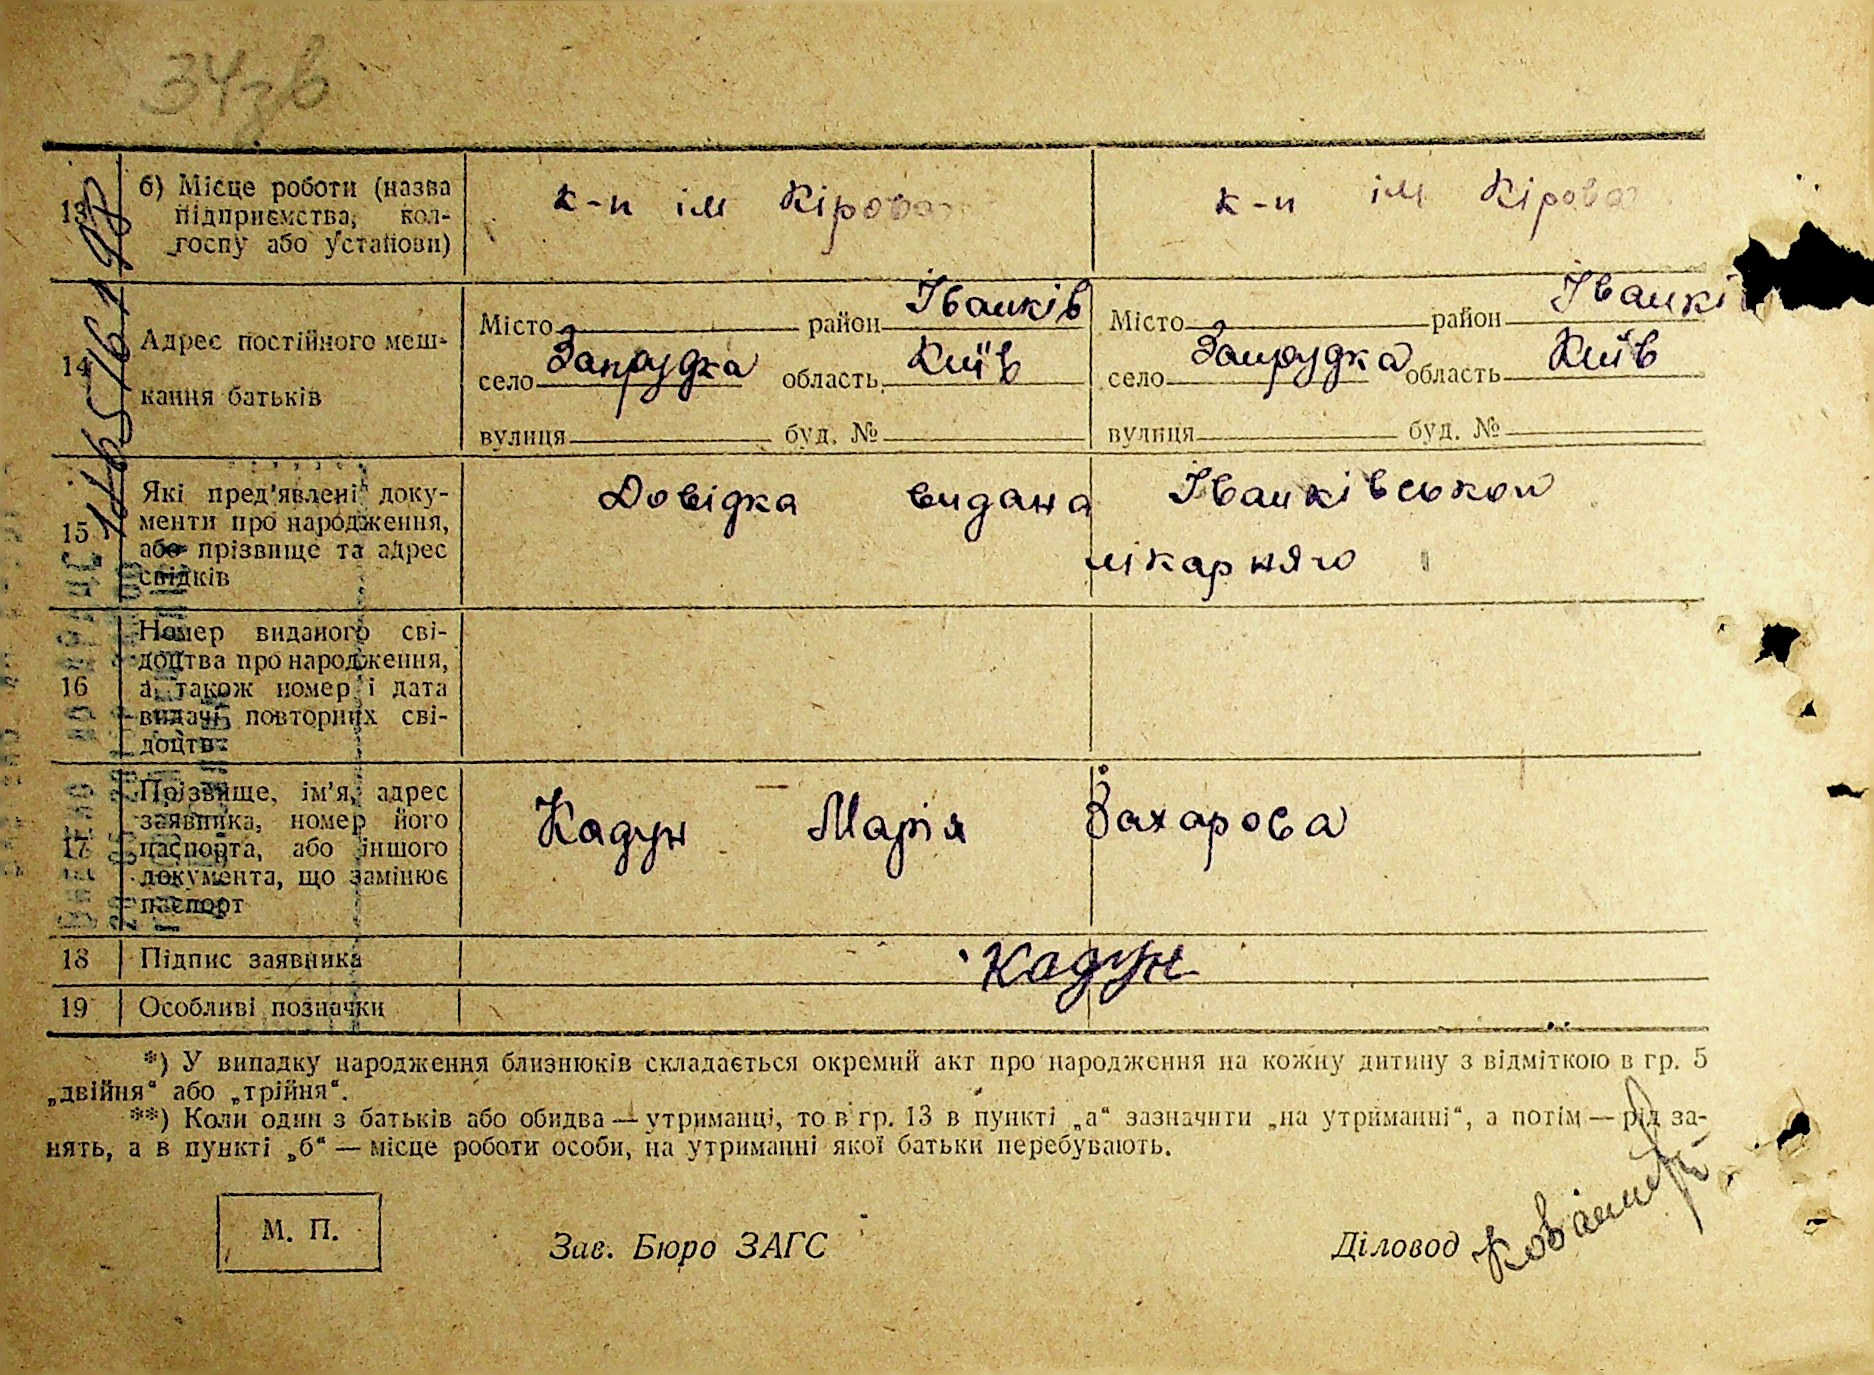 34зв
13 б) Місце роботи (назва підприємства, кол-госпу або установи) к-п ім Кірова к-п ім Кірова
14 Адрес постійного меш-кання батьків
Місто район Іванків Місто район Іванків
село Запрудка область Київ село Запрудка область Київ
вулиця буд. № вулиця буд. №
15 Які пред'явлені доку-менти про народження, або прізвище та адрес свідків
Довідка видана Іванківською
лікарняю
16 Номер виданого сві-доцтва про народження, а також номер і дата видачі повторних сві-доцтв
17 Прізвище, ім'я, адрес заявника, номер його паспорта, або іншого документа, що замінює паспорт
Кадун Марія Захарова
18 Підпис заявника Кадун
19 Особливі позначки
*) У випадку народження близнюків складається окремий акт про народження на кожну дитину з відміткою в гр. 5
„двійня“ або „трійня“.
**) Коли один з батьків або обидва — утриманці, то в гр. 13 в пункті „а“ зазначити „на утриманні“, а потім — рід за-
нять, а в пункті „б“ — місце роботи особи, на утриманні якої батьки перебувають.
М. П. Зав. Бюро ЗАГС Діловод